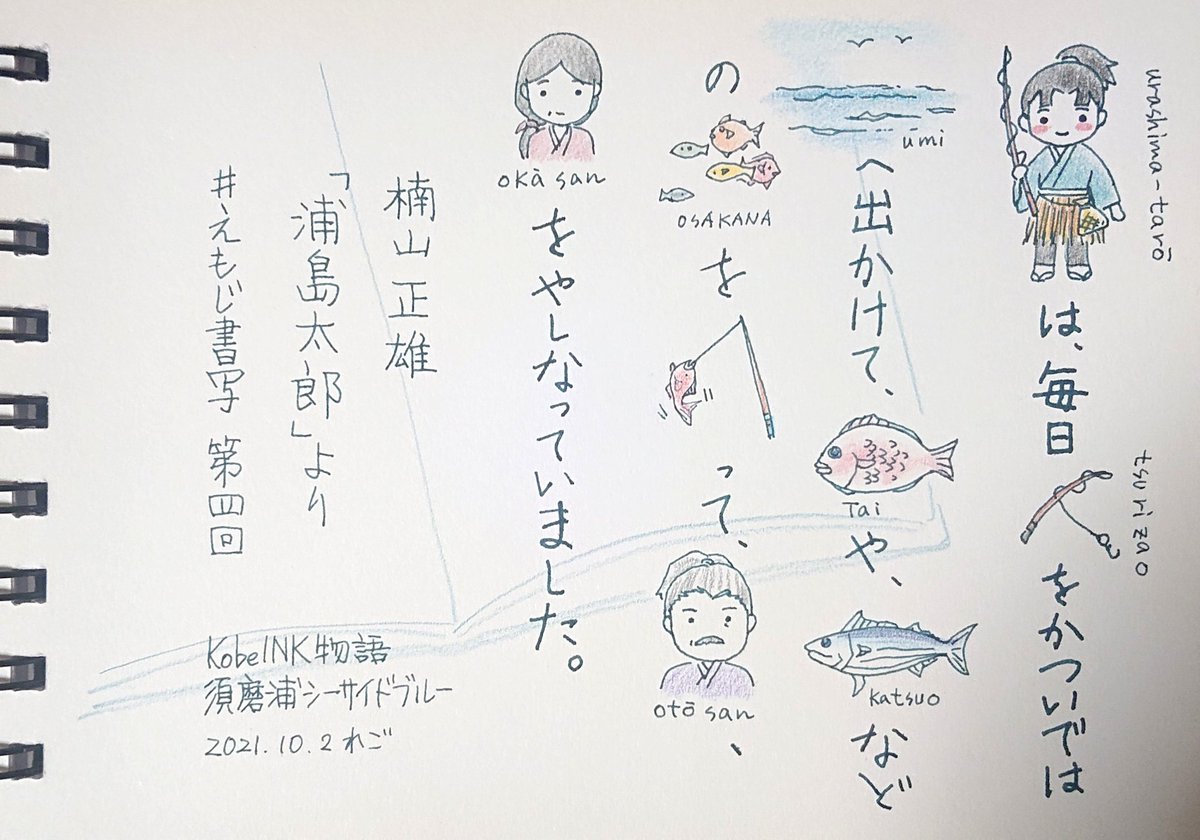 urashima-tarō
は、毎日
tsurizao
をかついでは
umi
へ出かけて、
Tai
や、
Katsuo
など
の
OSAKANA
を
って、
otō san
、
okā san
をやしなっていました。
楠山正雄
「浦島太郎」より
#えもじ書写 第四回
KobeINK物語
須磨浦シーサイドブルー
2021.10.2 れご